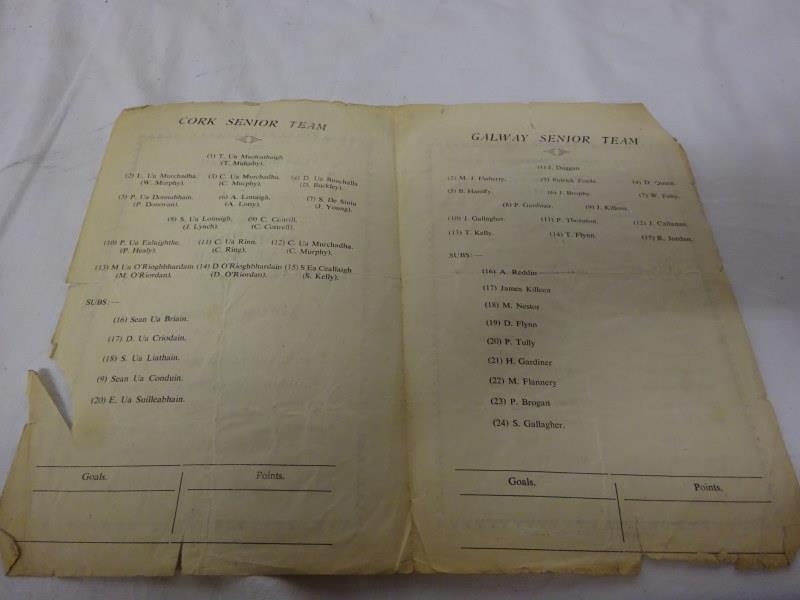 CORK SENIOR TEAM
(1) T. Ua Murchathaigh
(T. Mulcahy).
(2) L. Ua Murchadha. (3) C. Ua Murchadha. (4) D. Ua Buachalla
(W. Murphy). (C. Murphy). (D. Buckley).
(5) P. Ua Donnabhain. (6) A. Lonaigh. (7) S. De Siuin
(P. Donovan). (A. Lotty). (J. Young).
(8) S. Ua Loinsigh. (9) C. Cottrill.
(J. Lynch). (C. Cottrell).
(10) P. Ua Ealuighthe. (11) C. Ua Rinn. (12) C. Ua Murchadha.
(P. Healy). (C. Ring). (C. Murphy).
(13) M Ua O'Rioghbhardam (14) D O'Rioghbhardain (15) S Ea Ceallaigh
(M. O'Riordan). (D. O'Riordan). (S. Kelly).
SUBS:—
(16) Sean Ua Briain.
(17) D. Ua Criodain.
(18) S. Ua Liathain.
(9) Sean Ua Conduin.
(20) E. Ua Suilleabhain.
Goals. Points.
GALWAY SENIOR TEAM
(1) J. Duggan
(2) M. J. Flaherty. (3) Patrick Forde. (4) D. Quinn.
(5) B. Hanify. (6) J. Brophy. (7) W. Fahy.
(8) P. Gardiner. (9) J. Killeen.
(10) J. Gallagher. (11) P. Thornton. (12) J. Callanan.
(13) T. Kelly. (14) T. Flynn. (15) B. Jordan.
SUBS:—
(16) A. Reddin
(17) James Killeen
(18) M. Nestor
(19) D. Flynn
(20) P. Tully
(21) H. Gardiner
(22) M. Flannery
(23) P. Brogan
(24) S. Gallagher.
Goals. Points.